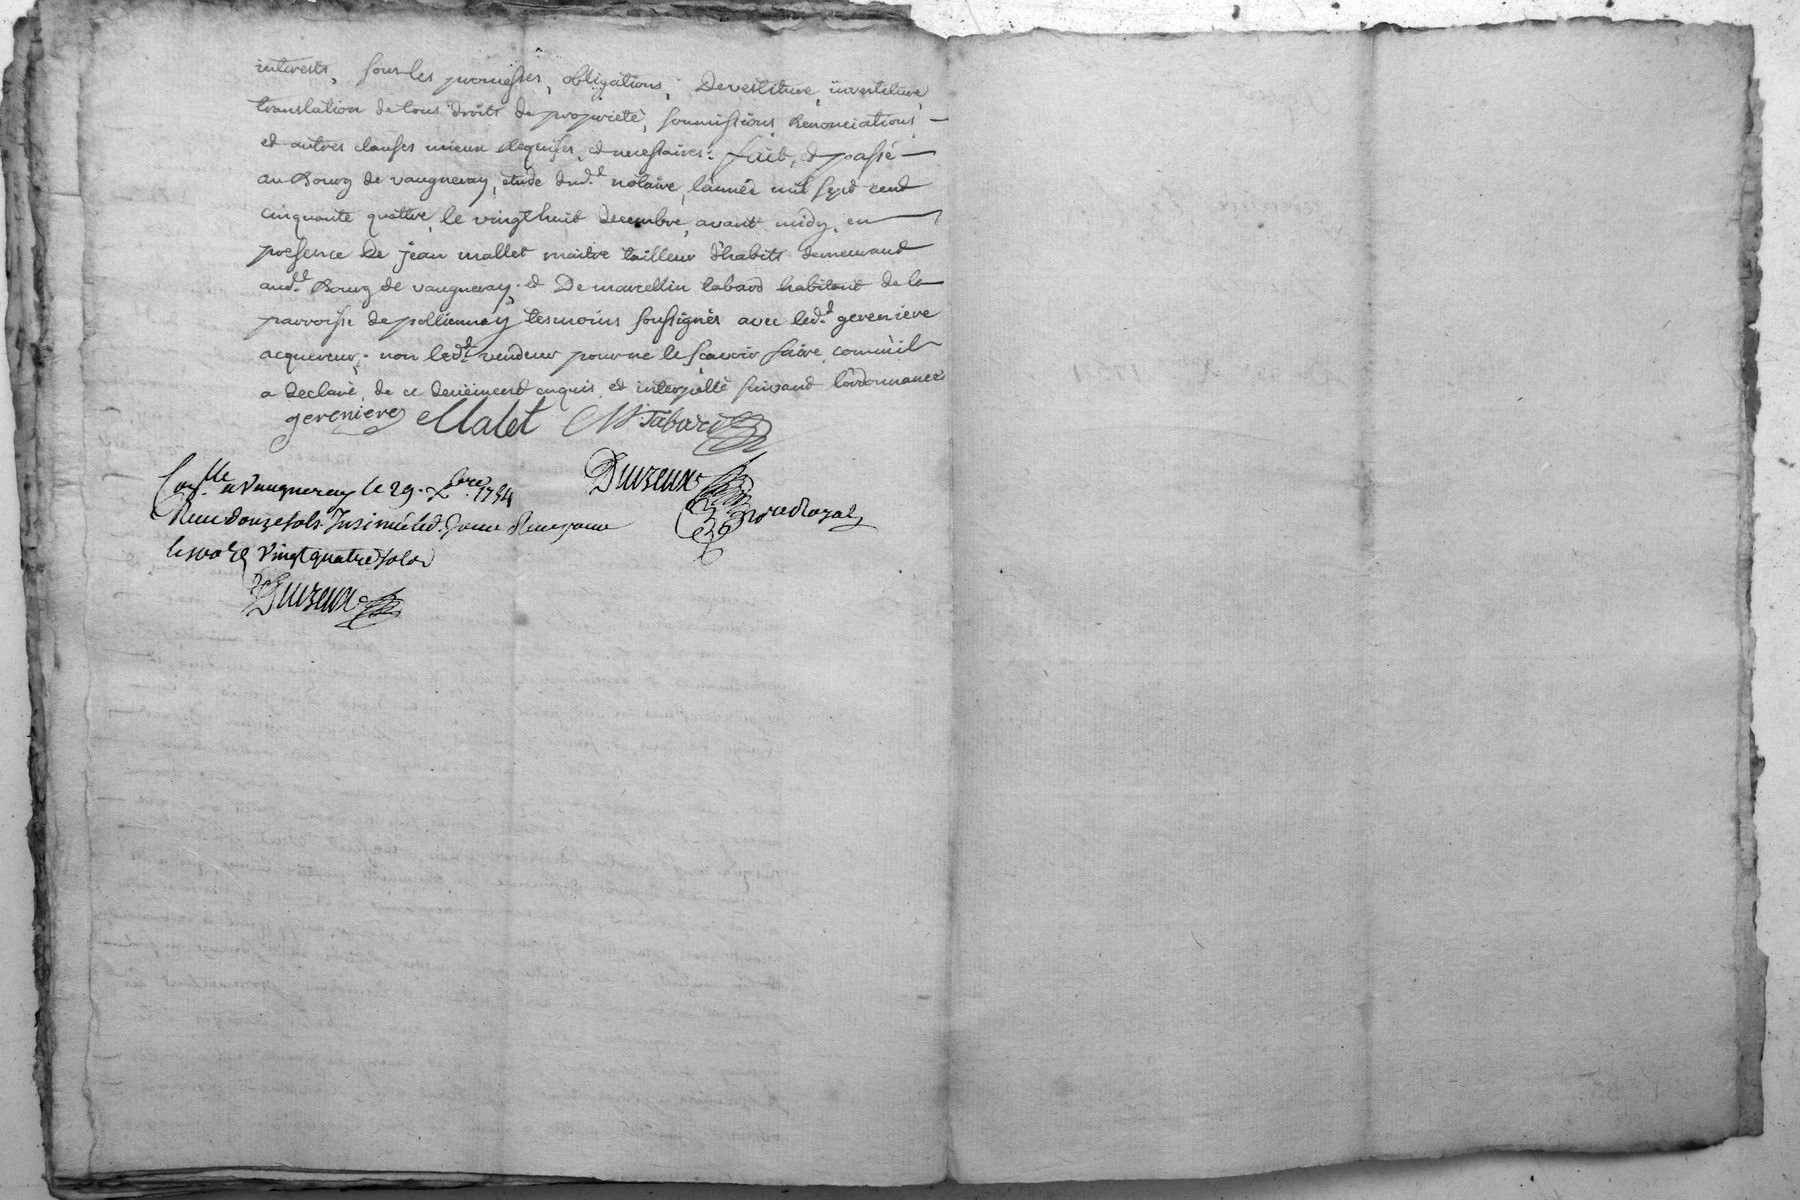 interests, sous les promesses, obligations, Devestiture, investiture,
translation de tous droits de proprieté, soumissions, Renonciations
et autres clauses mieux Requises, et necessaires: fait, et passé
au Bourg de vaugneray, etude dud.t notaire, l'année mil sept cent
cinquante quattre, le vingt huit decembre, avant midy, en
presence De jean mallet maitre tailleur d'habits demeurant
aud.t Bourg de vaugneray, et De marcellin tabard habitant de la
parroisse de pollionnay tesmoins soussignés avec led.t gereniere
acquereur, non led.t vendeur pour ne le sçavoir faire, comm'il
a declaré, de ce deüement enquis et interpellé suivant l'ordonnance
gerenieres Malet M. Tabard
Duvzeux
Nore Royal
Con.lle a Vaugneray le 29. Xbre 1754
Reçu douze sols Insinué led. Jour Reçu pour
le vingt quatre sols
Duvzeux